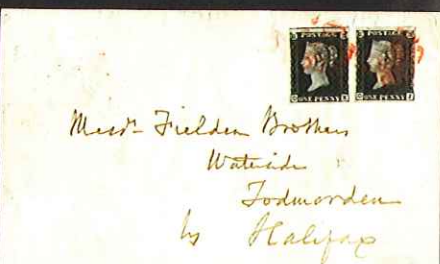 POSTAGE POSTAGE
ONE PENNY ONE PENNY
Messrs Fielden Brothers
Waterside
Todmorden
by Halifax